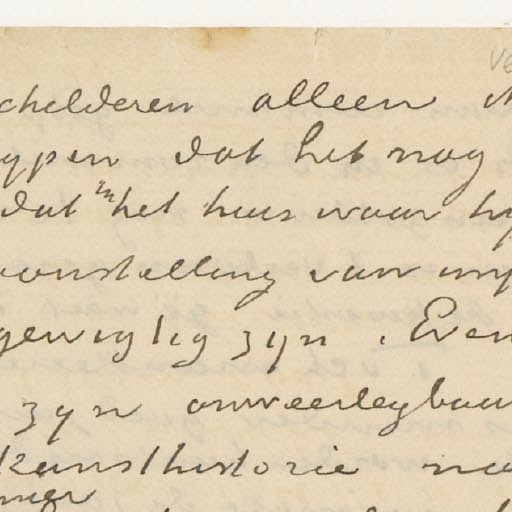 ve
childeren alleen
ypen dat het nog
dat in het huis waar hy
oonstelling van
gewigtig zyn. Even
zyn onweerlegbaar
kunsthistorie